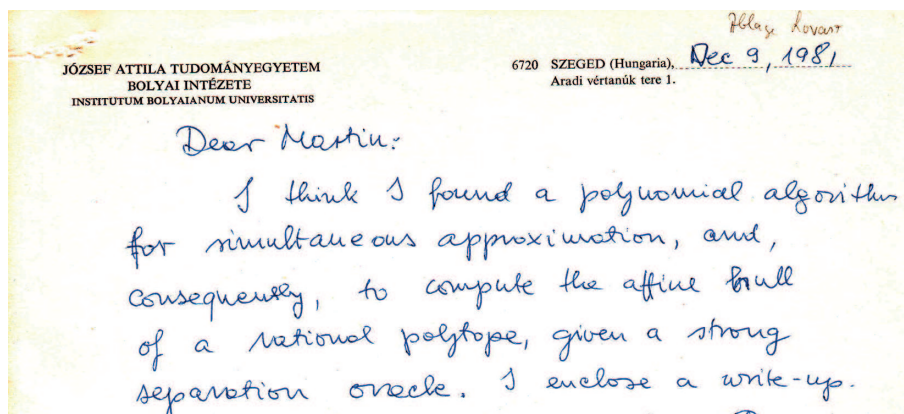 Ablage Lovasz
JÓZSEF ATTILA TUDOMÁNYEGYETEM
BOLYAI INTÉZETE
INSTITUTUM BOLYAIANUM UNIVERSITATIS
6720 SZEGED (Hungaria), Dec 9, 1981
Aradi vértanúk tere 1.
Dear Martin:
I think I found a polynomial algorithm
for simultaneous approximation, and,
consequently, to compute the affine hull
of a rational polytope, given a strong
separation oracle. I enclose a write-up.